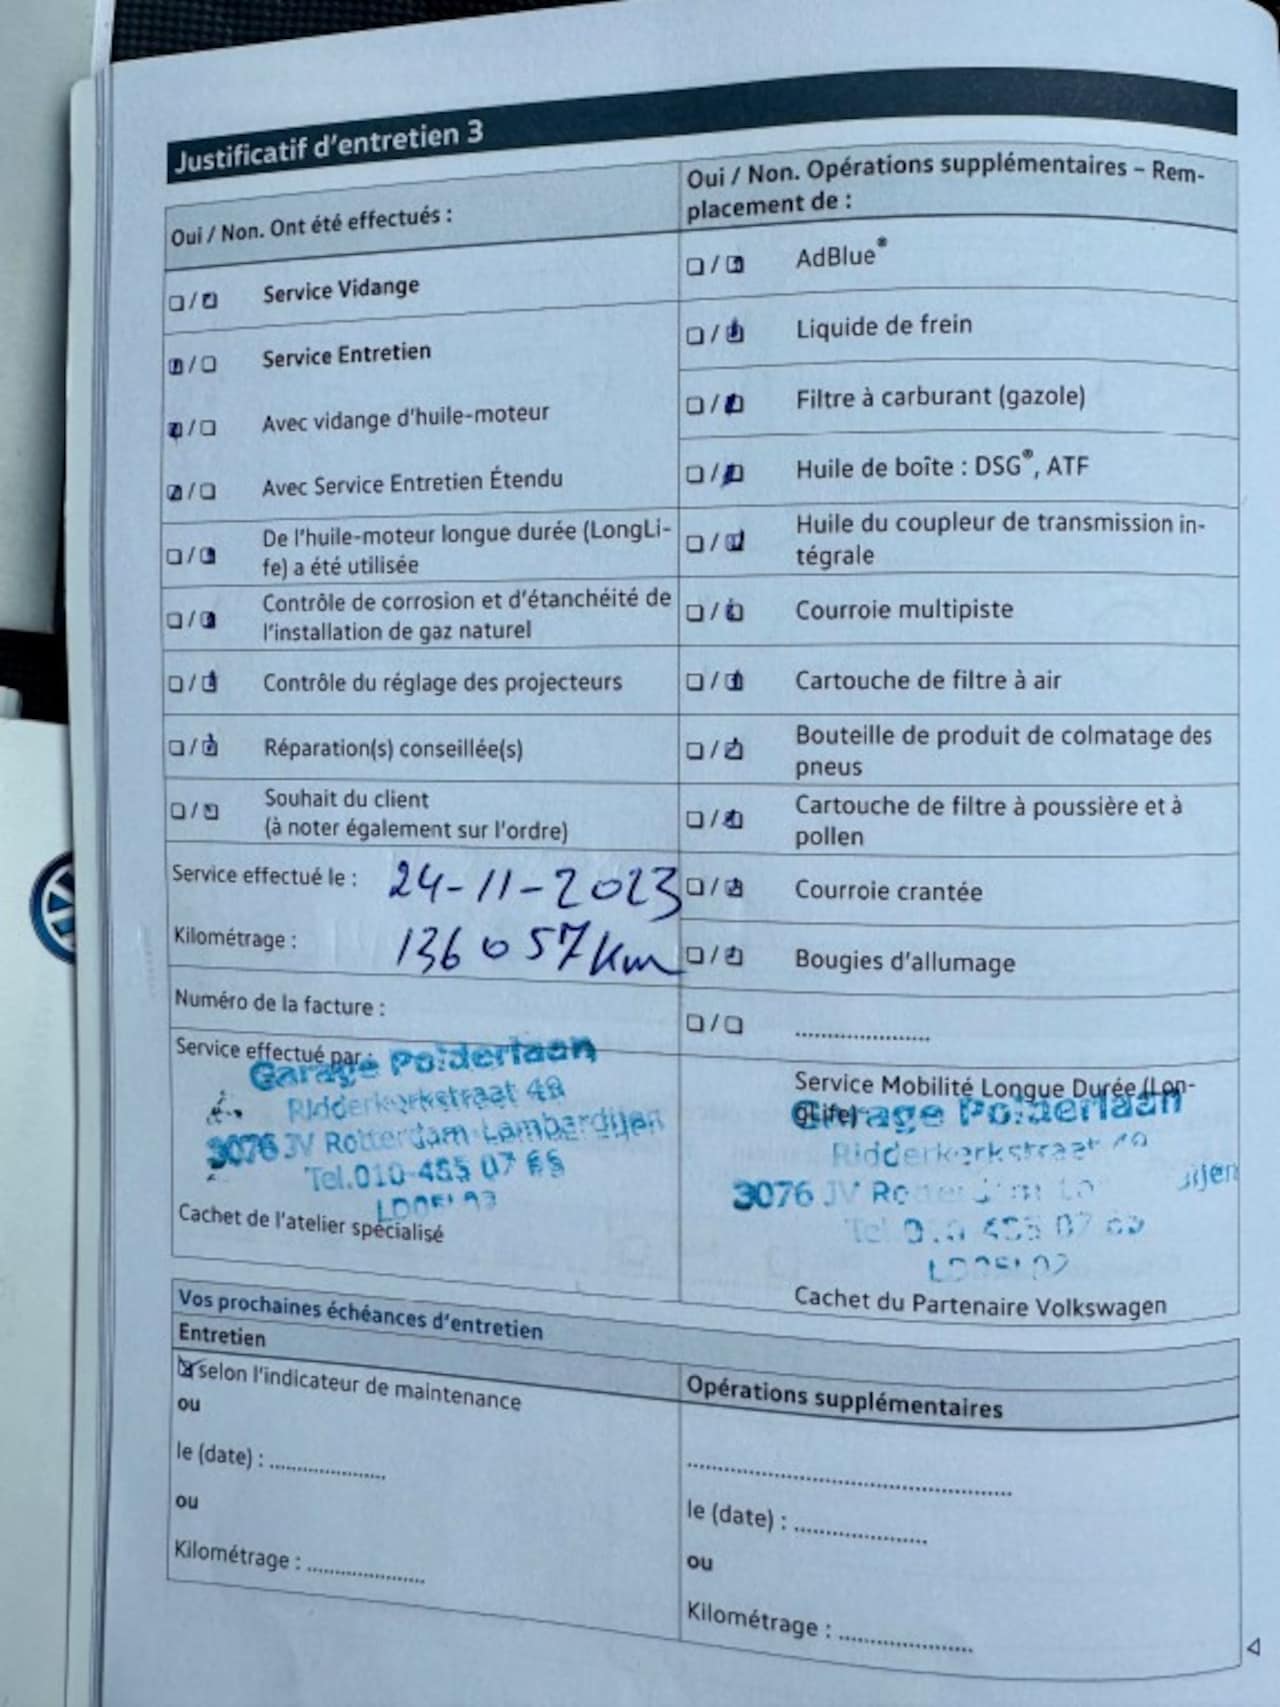 Justificatif d'entretien 3
Oui / Non. Ont été effectués :
Service Vidange
Service Entretien
Avec vidange d'huile-moteur
Avec Service Entretien Étendu
De l'huile-moteur longue durée (LongLi-
fe) a été utilisée
Contrôle de corrosion et d'étanchéité de
l'installation de gaz naturel
Contrôle du réglage des projecteurs
Réparation(s) conseillée(s)
Souhait du client
(à noter également sur l'ordre)
Service effectué le : 24-11-2023
Kilométrage : 136057 km
Numéro de la facture :
Service effectué par :
Garage Polderlaan
Ridderkerkstraat 48
3076 JV Rotterdam-Lombardijen
Tel. 010-455 07 66
Cachet de l'atelier spécialisé
Oui / Non. Opérations supplémentaires – Rem-
placement de :
AdBlue®
Liquide de frein
Filtre à carburant (gazole)
Huile de boîte : DSG®, ATF
Huile du coupleur de transmission in-
tégrale
Courroie multipiste
Cartouche de filtre à air
Bouteille de produit de colmatage des
pneus
Cartouche de filtre à poussière et à
pollen
Courroie crantée
Bougies d'allumage
......................
Service Mobilité Longue Durée (Lon-
gLife)
Garage Polderlaan
Ridderkerkstraat
3076 JV
Cachet du Partenaire Volkswagen
Vos prochaines échéances d'entretien
Entretien
selon l'indicateur de maintenance
ou
le (date) : ......................
ou
Kilométrage : ......................
Opérations supplémentaires
............................................................
le (date) : ......................
ou
Kilométrage : ......................